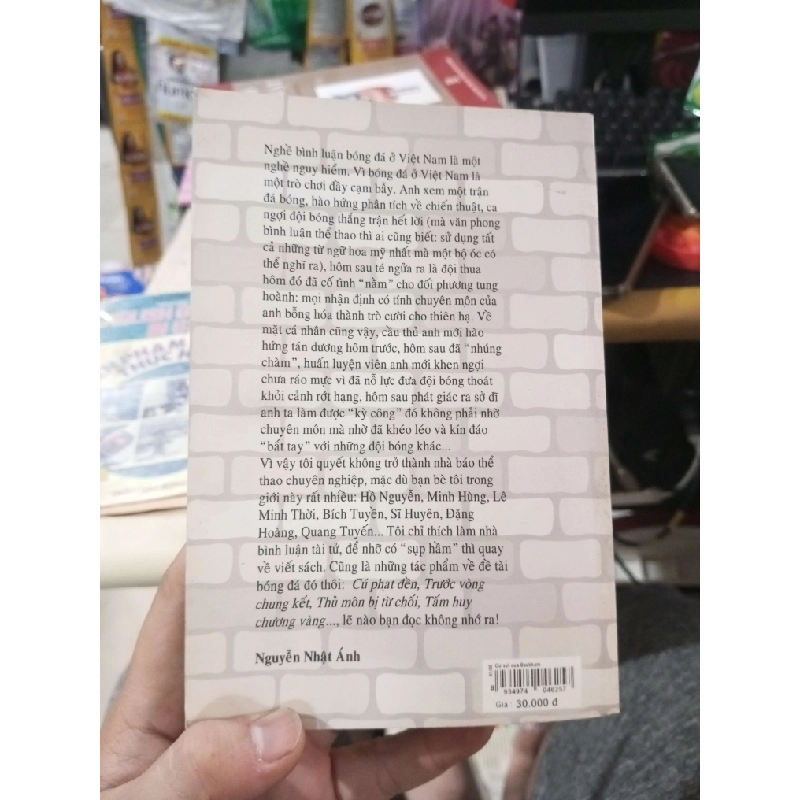 Nghề bình luận bóng đá ở Việt Nam là một
nghề nguy hiểm. Vì bóng đá ở Việt Nam là
một trò chơi đầy cạm bẫy. Anh xem một trận
đá bóng, hào hứng phân tích về chiến thuật, ca
ngợi đội bóng thắng trận hết lời (mà văn phong
bình luận thể thao thì ai cũng biết: sử dụng tất
cả những từ ngữ hoa mỹ nhất mà một bộ óc có
thể nghĩ ra), hôm sau té ngửa ra là đội thua
hôm đó đã cố tình “nằm” cho đối phương tung
hoành: mọi nhận định có tính chuyên môn của
anh bỗng hóa thành trò cười cho thiên hạ. Về
mặt cá nhân cũng vậy, cầu thủ anh mới hào
hứng tán dương hôm trước, hôm sau đã “nhúng
chàm”, huấn luyện viên anh mới khen ngợi
chưa ráo mực vì đã nỗ lực đưa đội bóng thoát
khỏi cảnh rớt hạng, hôm sau phát giác ra sở dĩ
anh ta làm được “kỳ công” đó không phải nhờ
chuyên môn mà nhờ đã khéo léo và kín đáo
“bắt tay” với những đội bóng khác...
Vì vậy tôi quyết không trở thành nhà báo thể
thao chuyên nghiệp, mặc dù bạn bè tôi trong
giới này rất nhiều: Hồ Nguyễn, Minh Hùng, Lê
Minh Thời, Bích Tuyền, Sĩ Huyên, Đặng
Hoàng, Quang Tuyến... Tôi chỉ thích làm nhà
bình luận tài tử, để nhỡ có “sụp hầm” thì quay
về viết sách. Cũng là những tác phẩm về đề tài
bóng đá đó thôi: Cú phạt đền, Trước vòng
chung kết, Thủ môn bị từ chối, Tấm huy
chương vàng..., lẽ nào bạn đọc không nhớ ra!
Nguyễn Nhật Ánh
Giá : 30.000 đ